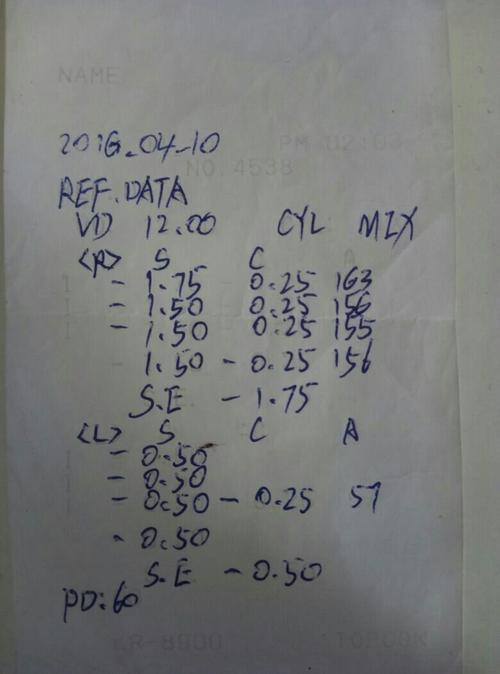 NAME
2016.04-10
PM 02:03
NO.4538
REF.DATA
VD 12.00 CYL MIX
<R> S C A
- 1.75 0.25 163
- 1.50 0.25 156
- 1.50 0.25 155
- 1.50 - 0.25 156
S.E - 1.75
<L> S C A
- 0.50
- 0.50
- 0.50 - 0.25 57
- 0.50
S.E - 0.50
PD:60
KR-8900 TOPCON